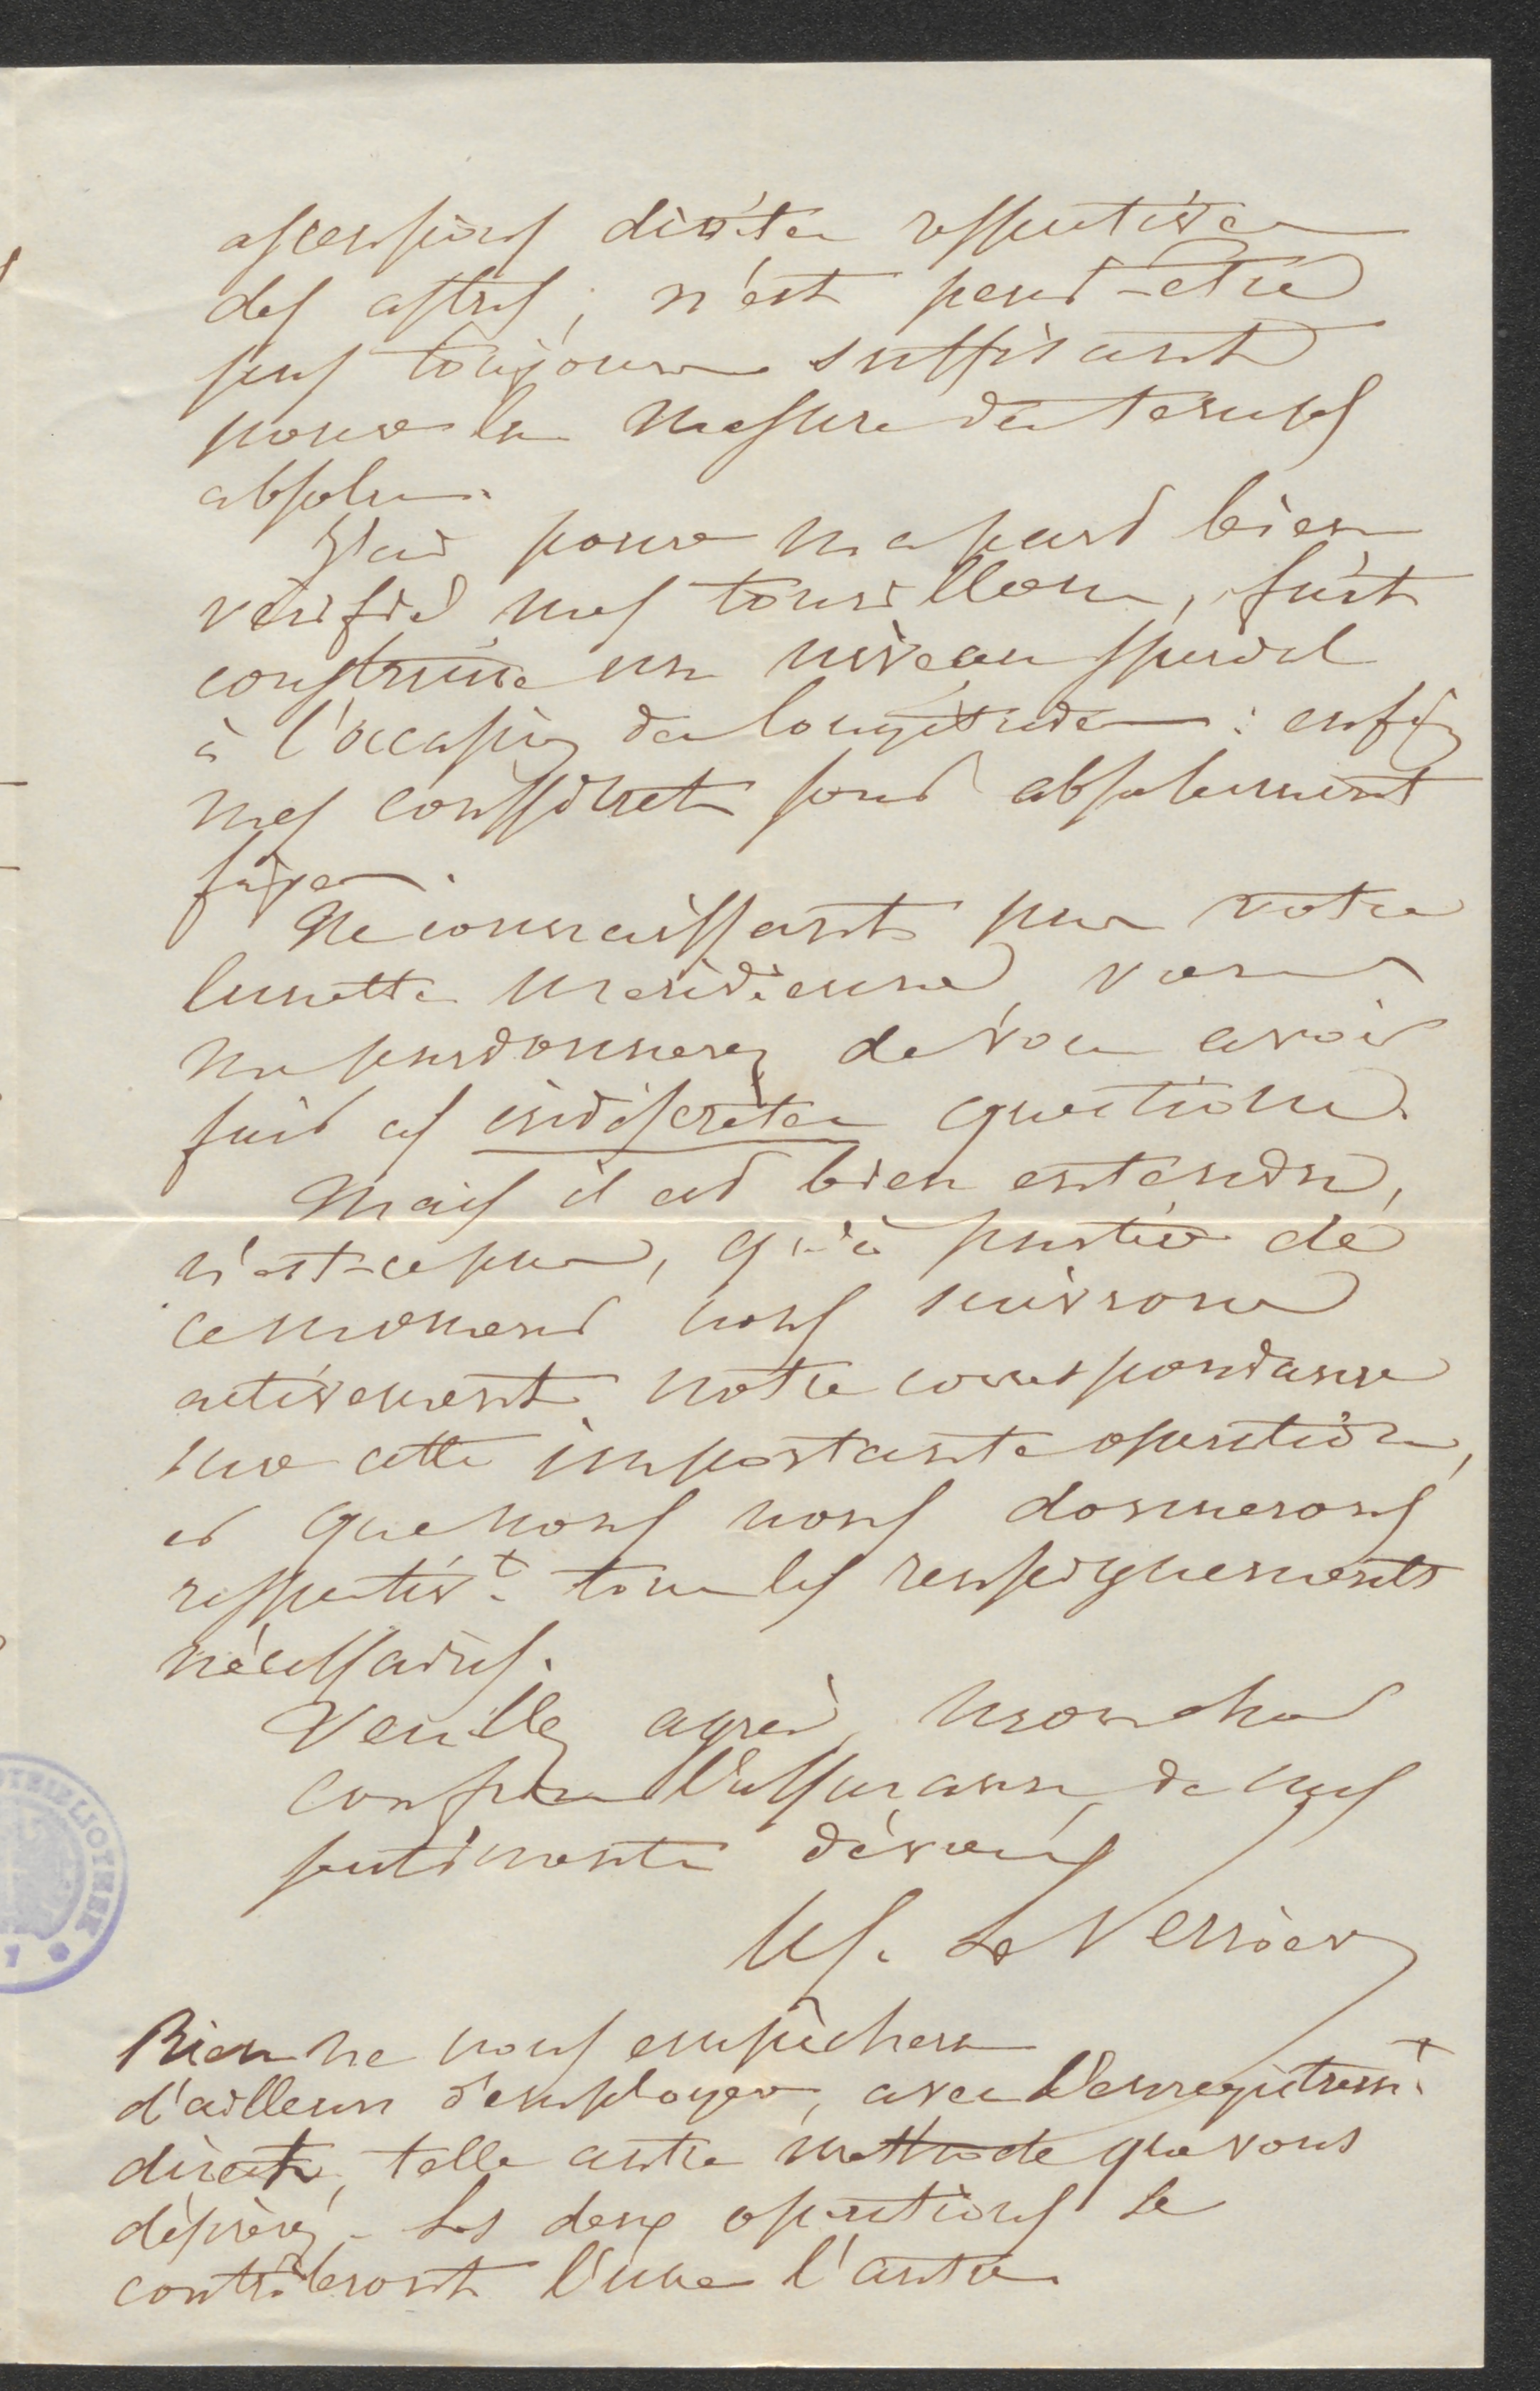 ascensions droites respectives
des astres, n'est peut-être
pas toujours suffisant
pour la mesure du temps
absolu.
J'ai pour ma part bien
vérifié mes tourillons, fait
construire un niveau spécial
à l'occasion des longitudes : enfin
mes coussinets sont absolument
fixes.
Ne connaissant pas votre
lunette méridienne, vous
me pardonnerez de vous avoir
fait ces indiscrètes questions.
Mais il est bien entendu,
n'est-ce pas, qu'à partir de
ce moment nous suivrons
activement notre correspondance
sur cette importante opération,
et que nous nous donnerons
respectivt tous les renseignements
nécessaires.
Veuillez agréer, mon cher
confrère l'assurance de mes
sentiments dévoués
Le Verrier
Rien ne nous empêchera
d'ailleurs d'employer, avec l'enregistremt
direct, telle autre méthode que vous
désirerez. Les deux opérations se
contrôleront l'une l'autre.